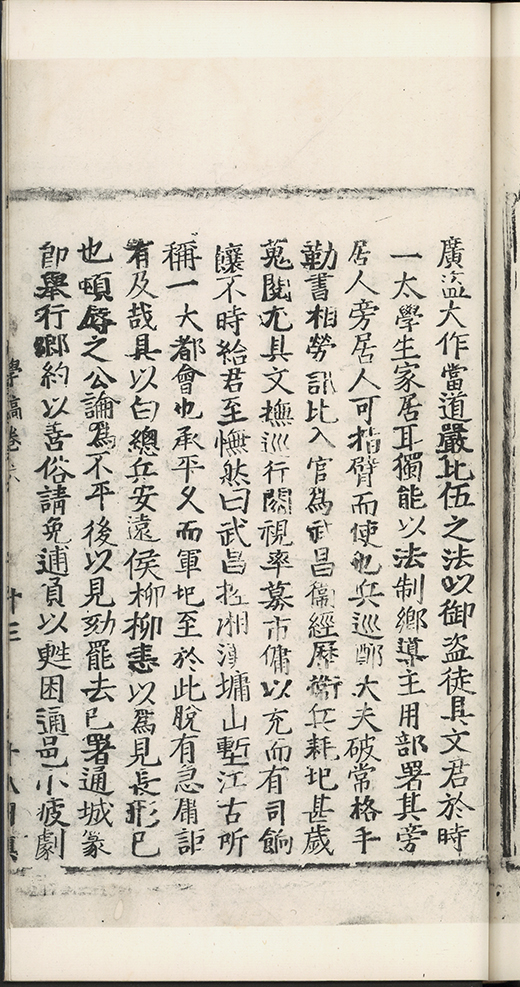 廣盜大作當道嚴比伍之法以御盜徒具文君於時
一太學生家居耳獨能以法制鄉導主用部署其旁
居人旁居人可指臂而使也兵巡鄺大夫破常格手
勤書相勞部比入官為武昌衛經歷衛兵耗圯甚歲
蒐閱尤具文撫巡行閱視率募市傭以充而有司餉
饟不時給君至憮然曰武昌控湘漢墉山塹江古所
稱一大都會也承平久而軍圯至於此脫有急傭詎
有及哉具以白總兵安遠侯柳柳恚以為見長形已
也頓辱之公論為不平後以見劾罷去已署通城篆
即舉行鄉約以善俗請免逋負以甦困通邑小疲劇
學稿卷六 廿三